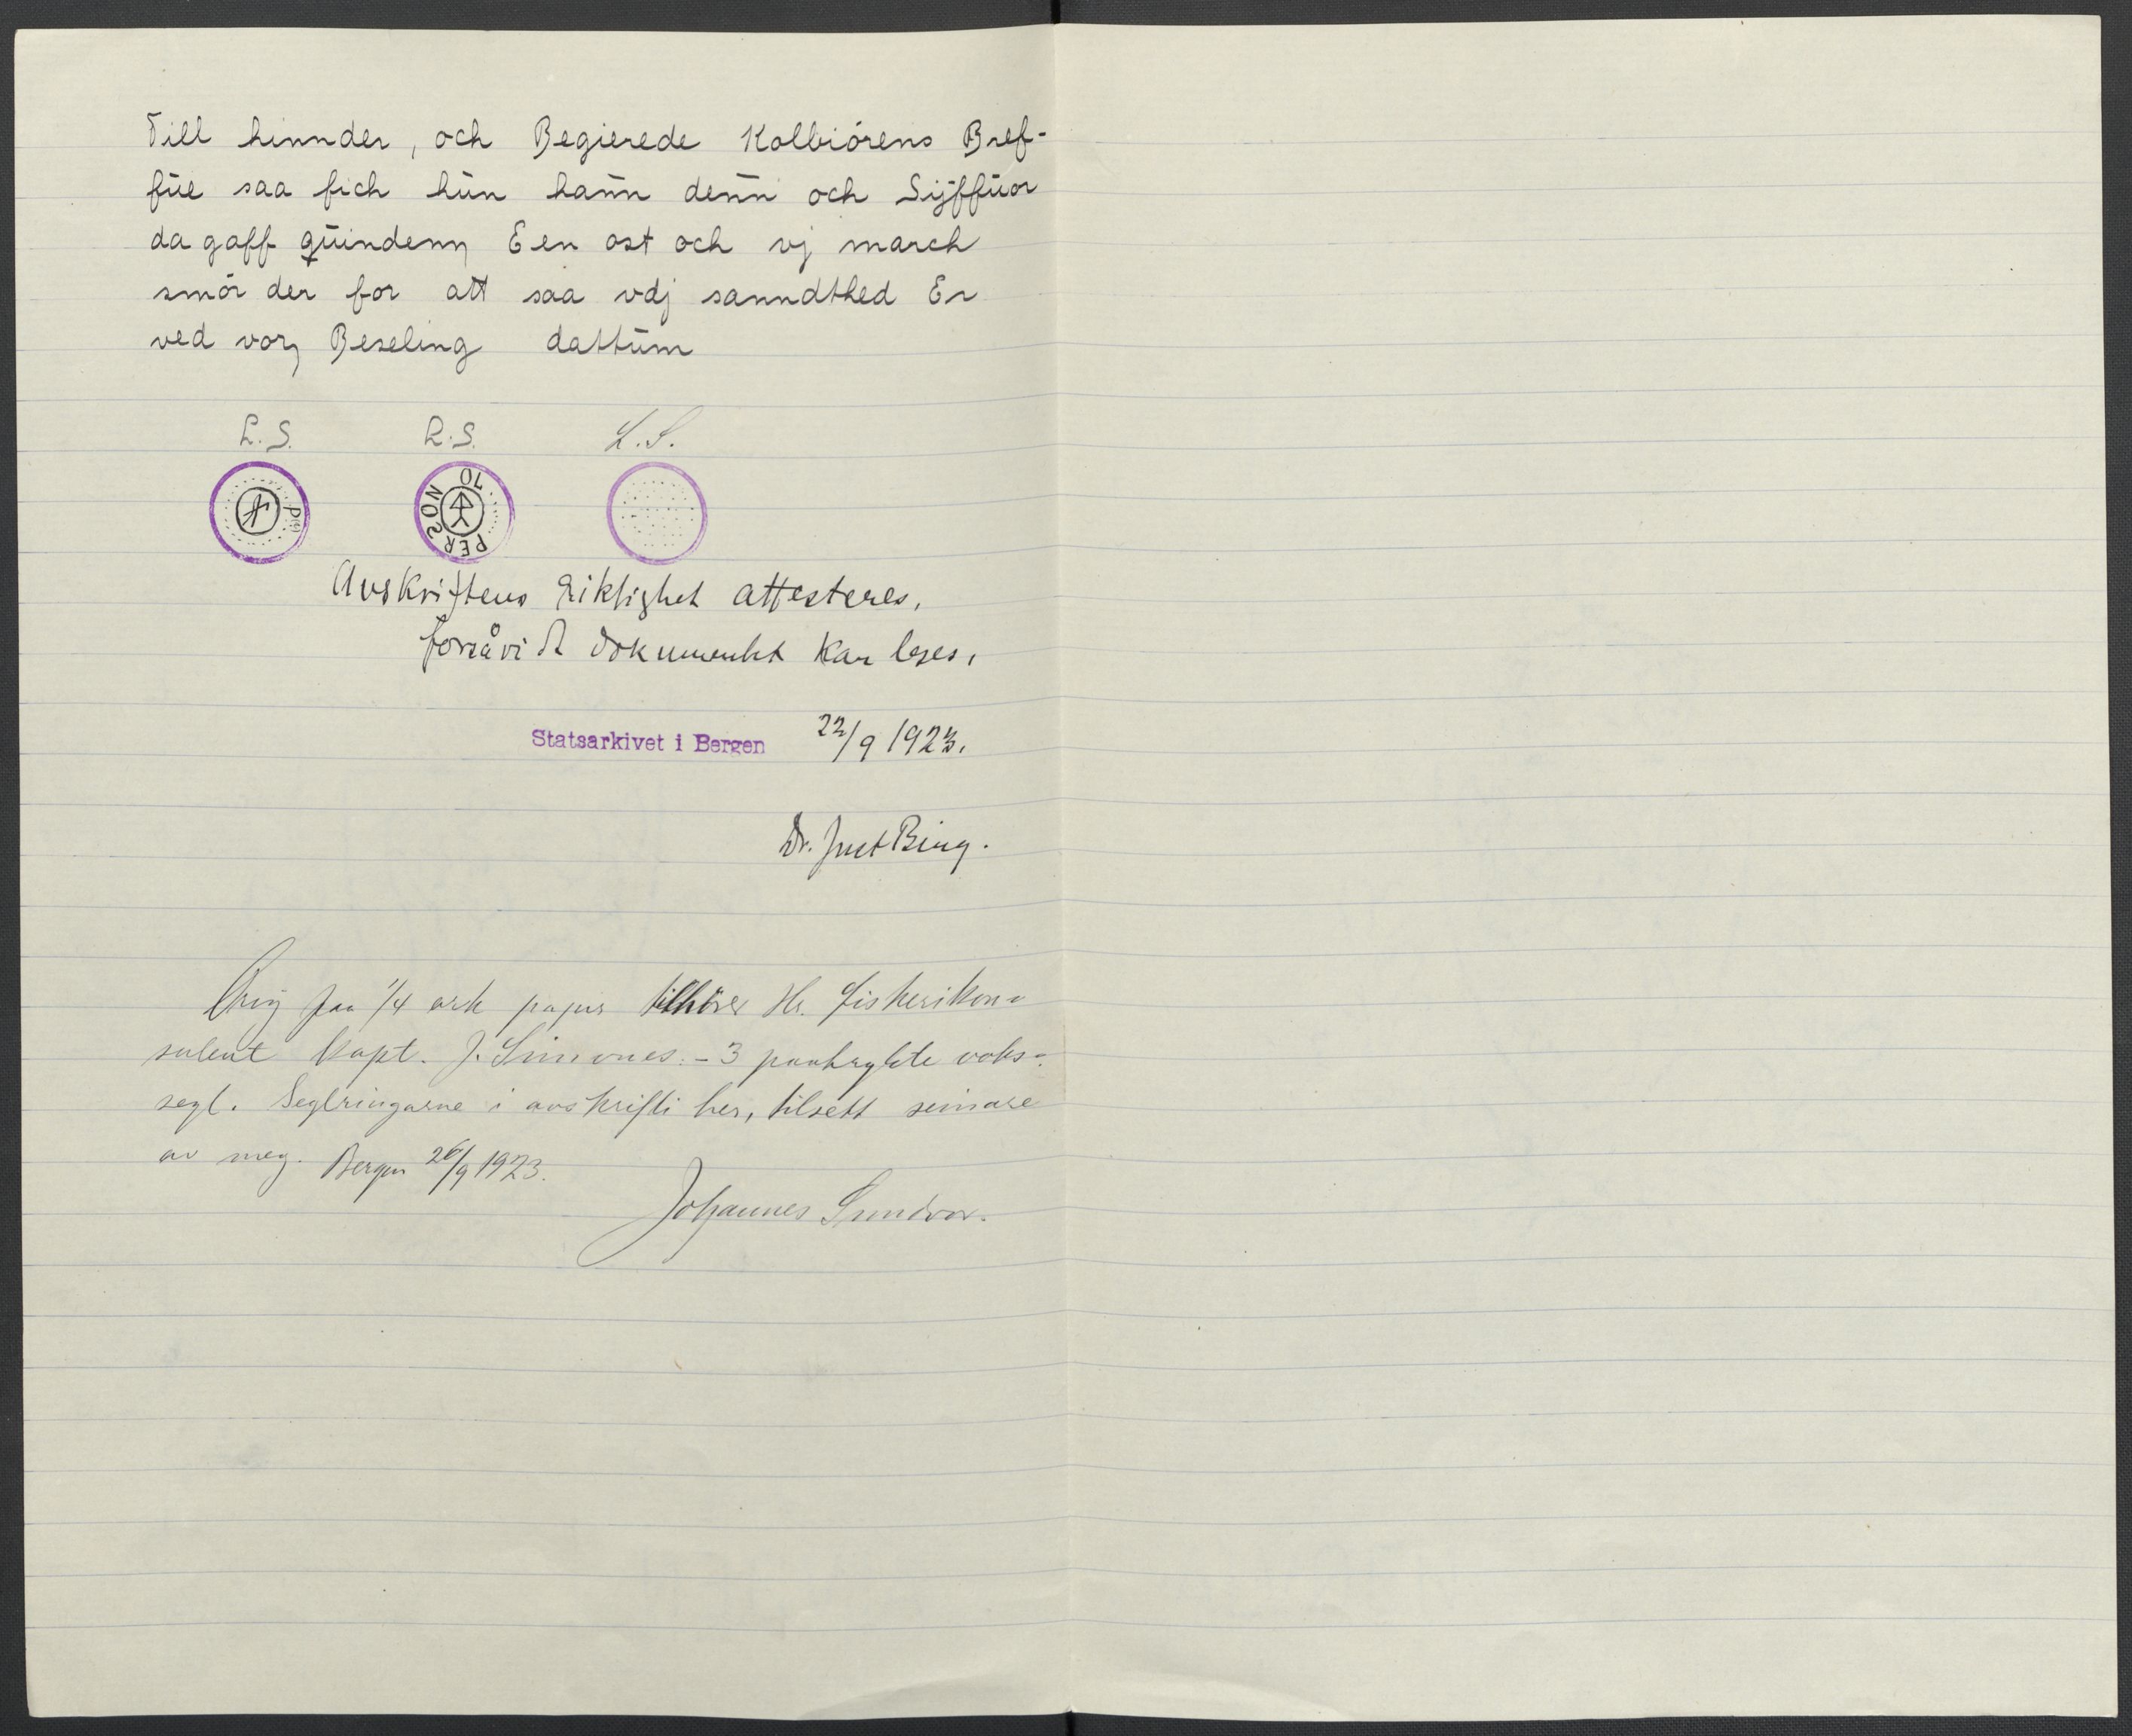 Till hinnder, och Begierede Kolbiörens Bref-
füe saa fich hün hann denn och Sijffüor
da gaff qüindenn Een ost och vj march
smör der for att saa vdj sanndthed Er
ved vor Beseling dattüm
L.S. L.S. L.S.
PERSON
Avskriftens riktighet attesteres,
forsåvidt dokumentet kan leses.
Statsarkivet i Bergen 22/9 1923.
Dr. Just Bing.
Orig paa 1/4 ark papir tilhörer Hr. fiskerikon-
sulent Kapt. J. Simones. - 3 paatrykte voks-
segl. Seglringarne i avskrifti her, tilsett seinare
av meg. Bergen 26/9 1923.
Johannes Sundvor.